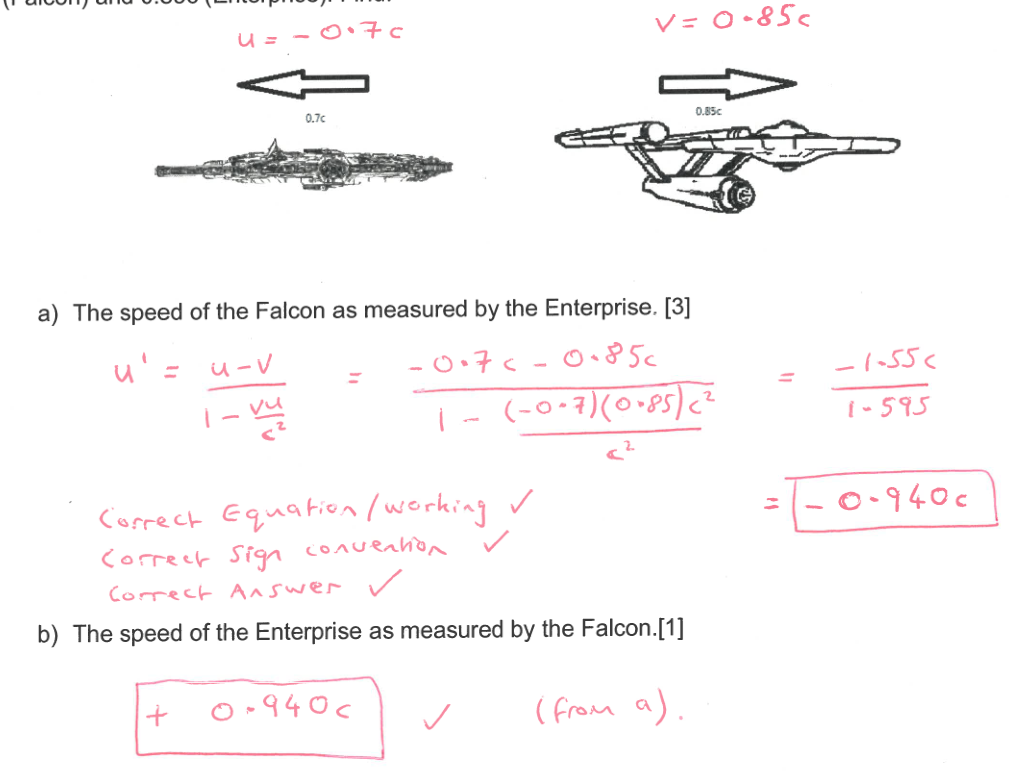 u = - 0.7c
v = 0.85c
0.7c
0.85c
a) The speed of the Falcon as measured by the Enterprise. [3]
u' = u-v / 1 - vu/c² = -0.7c - 0.85c / 1 - (-0.7)(0.85)c²/c² = -1.55c / 1.595
= - 0.940c
Correct Equation/working ✓
Correct Sign convention ✓
Correct Answer ✓
b) The speed of the Enterprise as measured by the Falcon.[1]
+ 0.940c ✓ (from a).